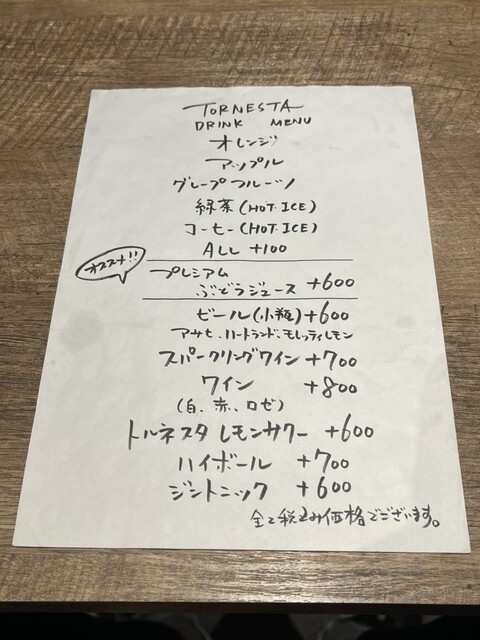 TORNESTA
DRINK MENU
オレンジ
アップル
グレープフルーツ
緑茶(HOT.ICE)
コーヒー(HOT.ICE)
ALL +100
オススメ!!
プレミアム
ぶどうジュース +600
ビール(小瓶)+600
アサヒ、ハートランド、モレッティレモン
スパークリングワイン +700
ワイン +800
(白、赤、ロゼ)
トルネスタ レモンサワー +600
ハイボール +700
ジントニック +600
全て税込み価格でございます。